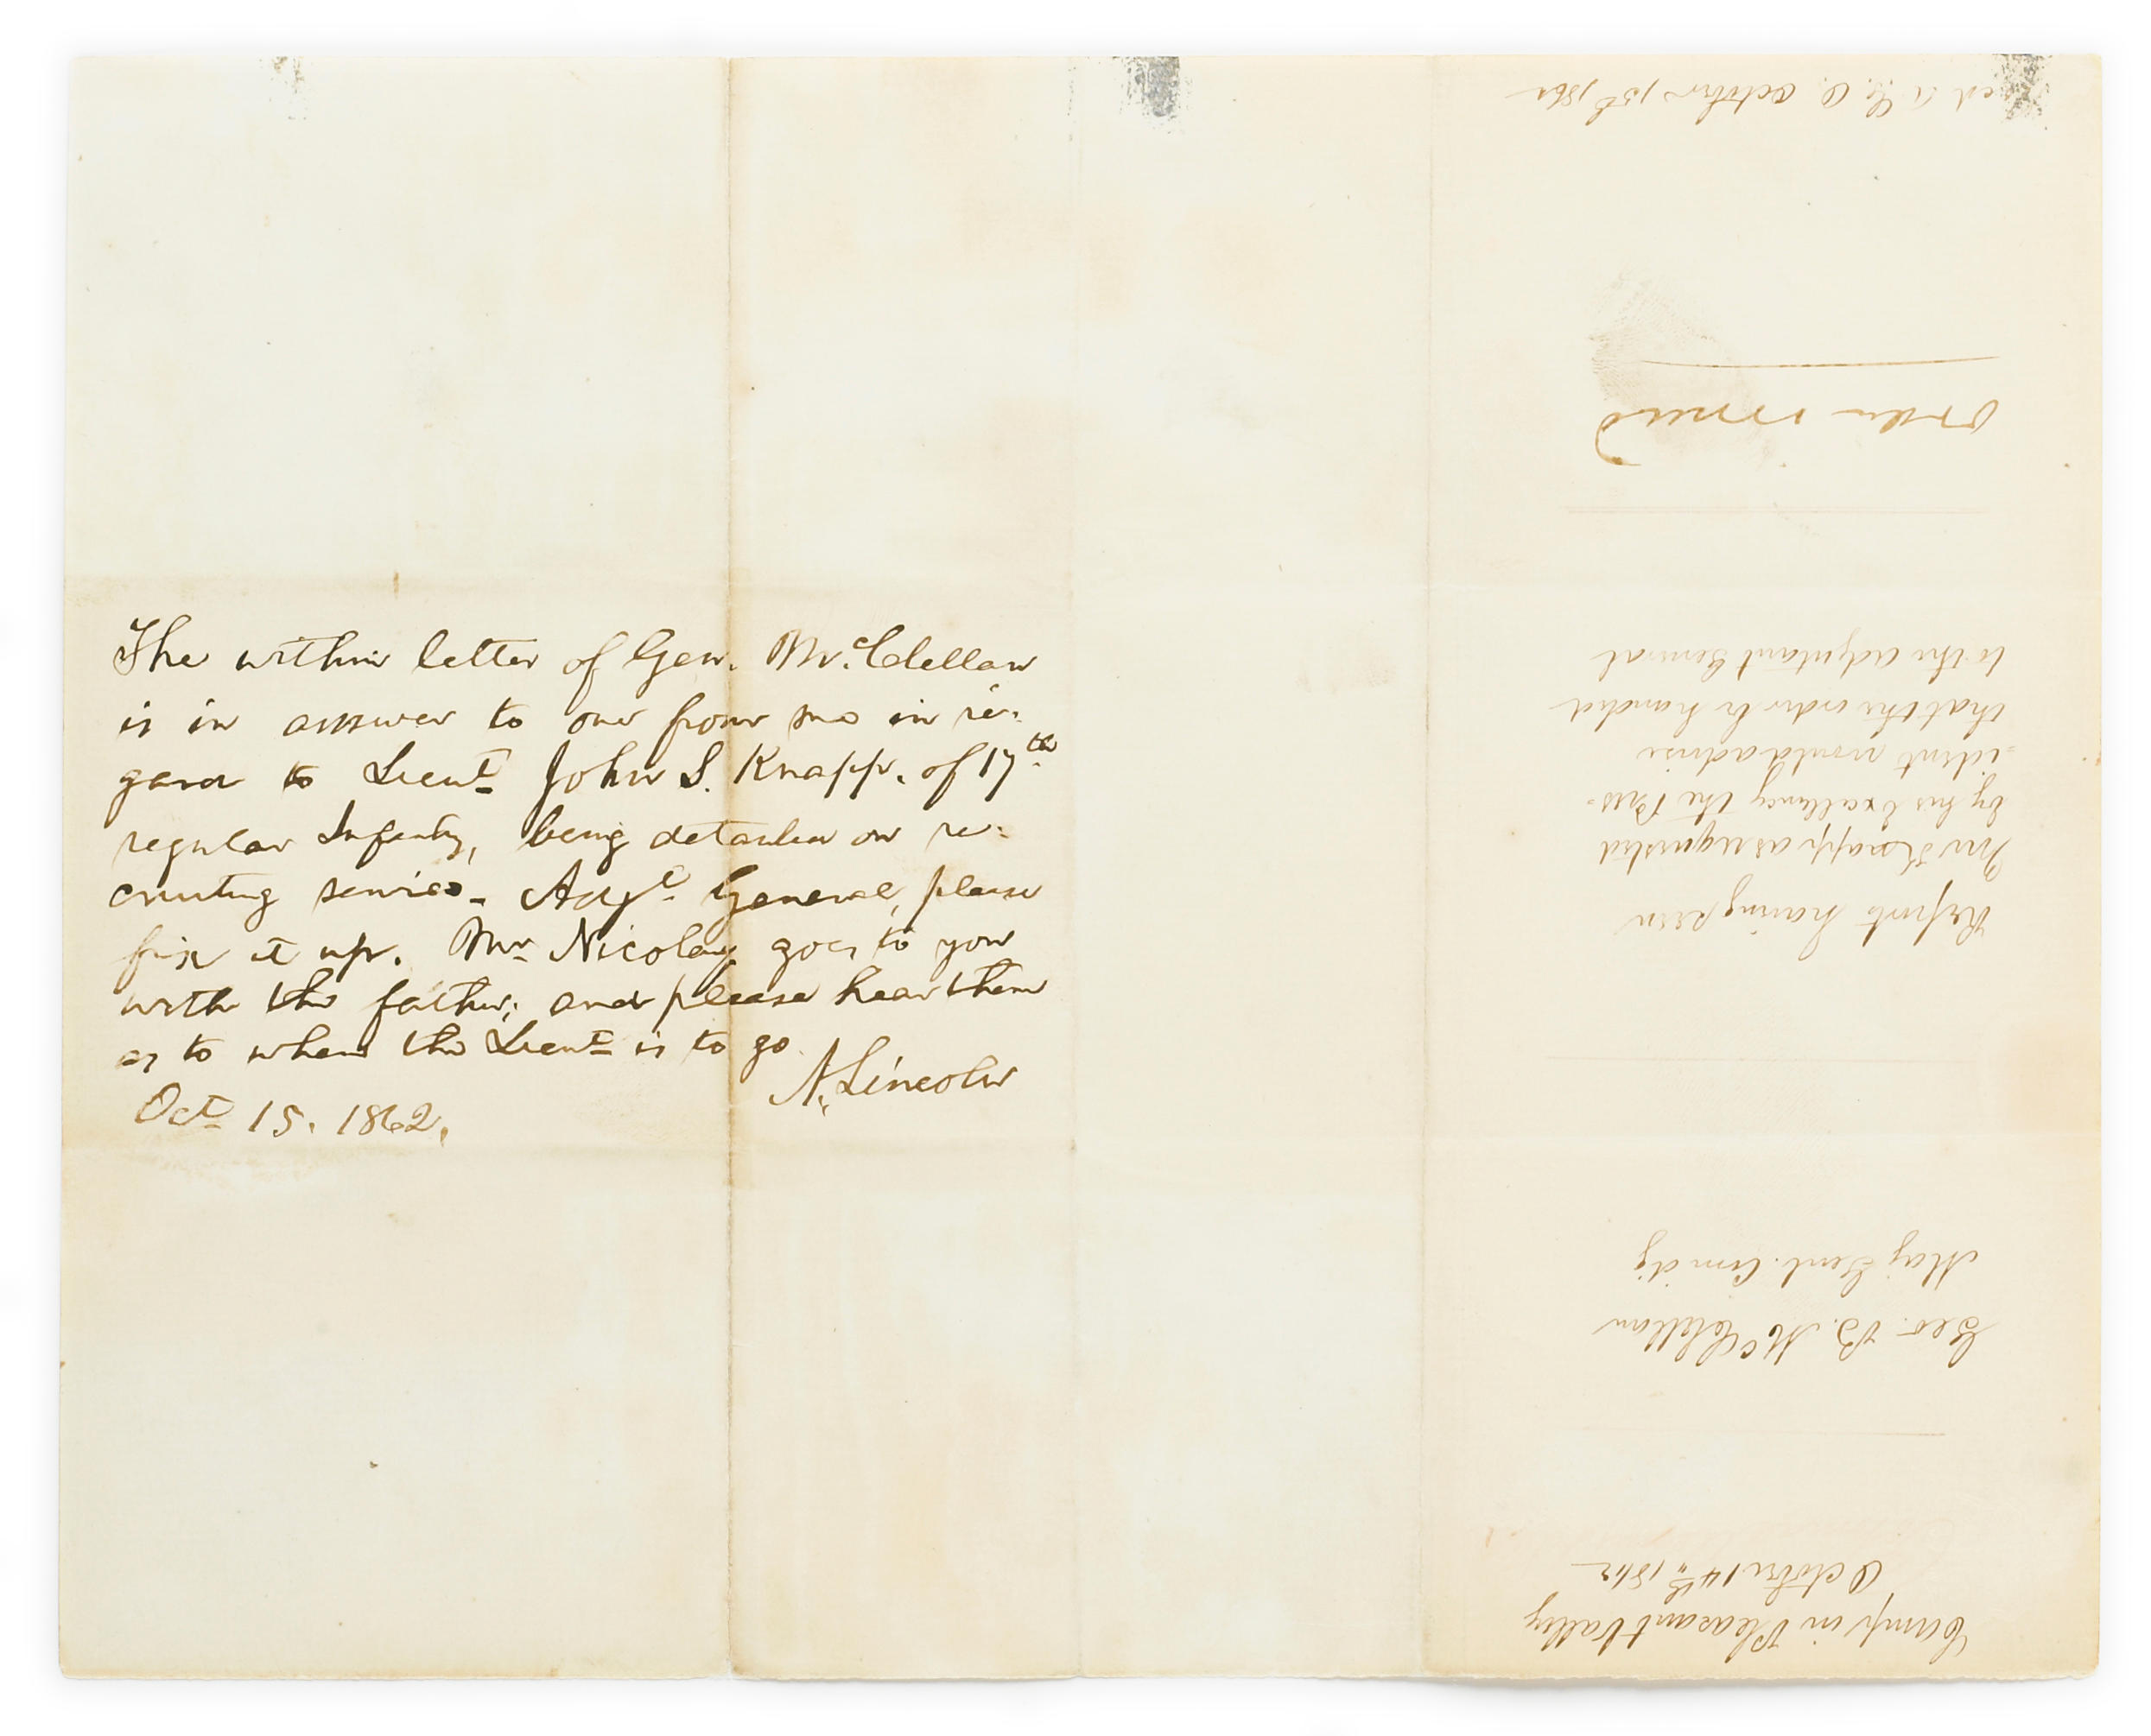 The within letter of Gen. McClellan
is in answer to one from me in re-
gard to Lieut John S. Knapp. of 17th
regular Infantry, being detailed on re-
cruiting service- Adjt General, please
fix it up. Mr Nicolay goes to you
with the father; and please hear them
as to where the Lieut is to go.
A. Lincoln
Oct 15. 1862.
Camp in Pleasant Valley
October 14th, 1862
Geo. B. McClellan
Maj Genl. Comdg
Reports having seen
Mr Knapp as requested
by his Excellency the Pres-
-ident would advise
that the order be handed
to the Adjutant General
Order issued
A. G. O. October 15th 1862